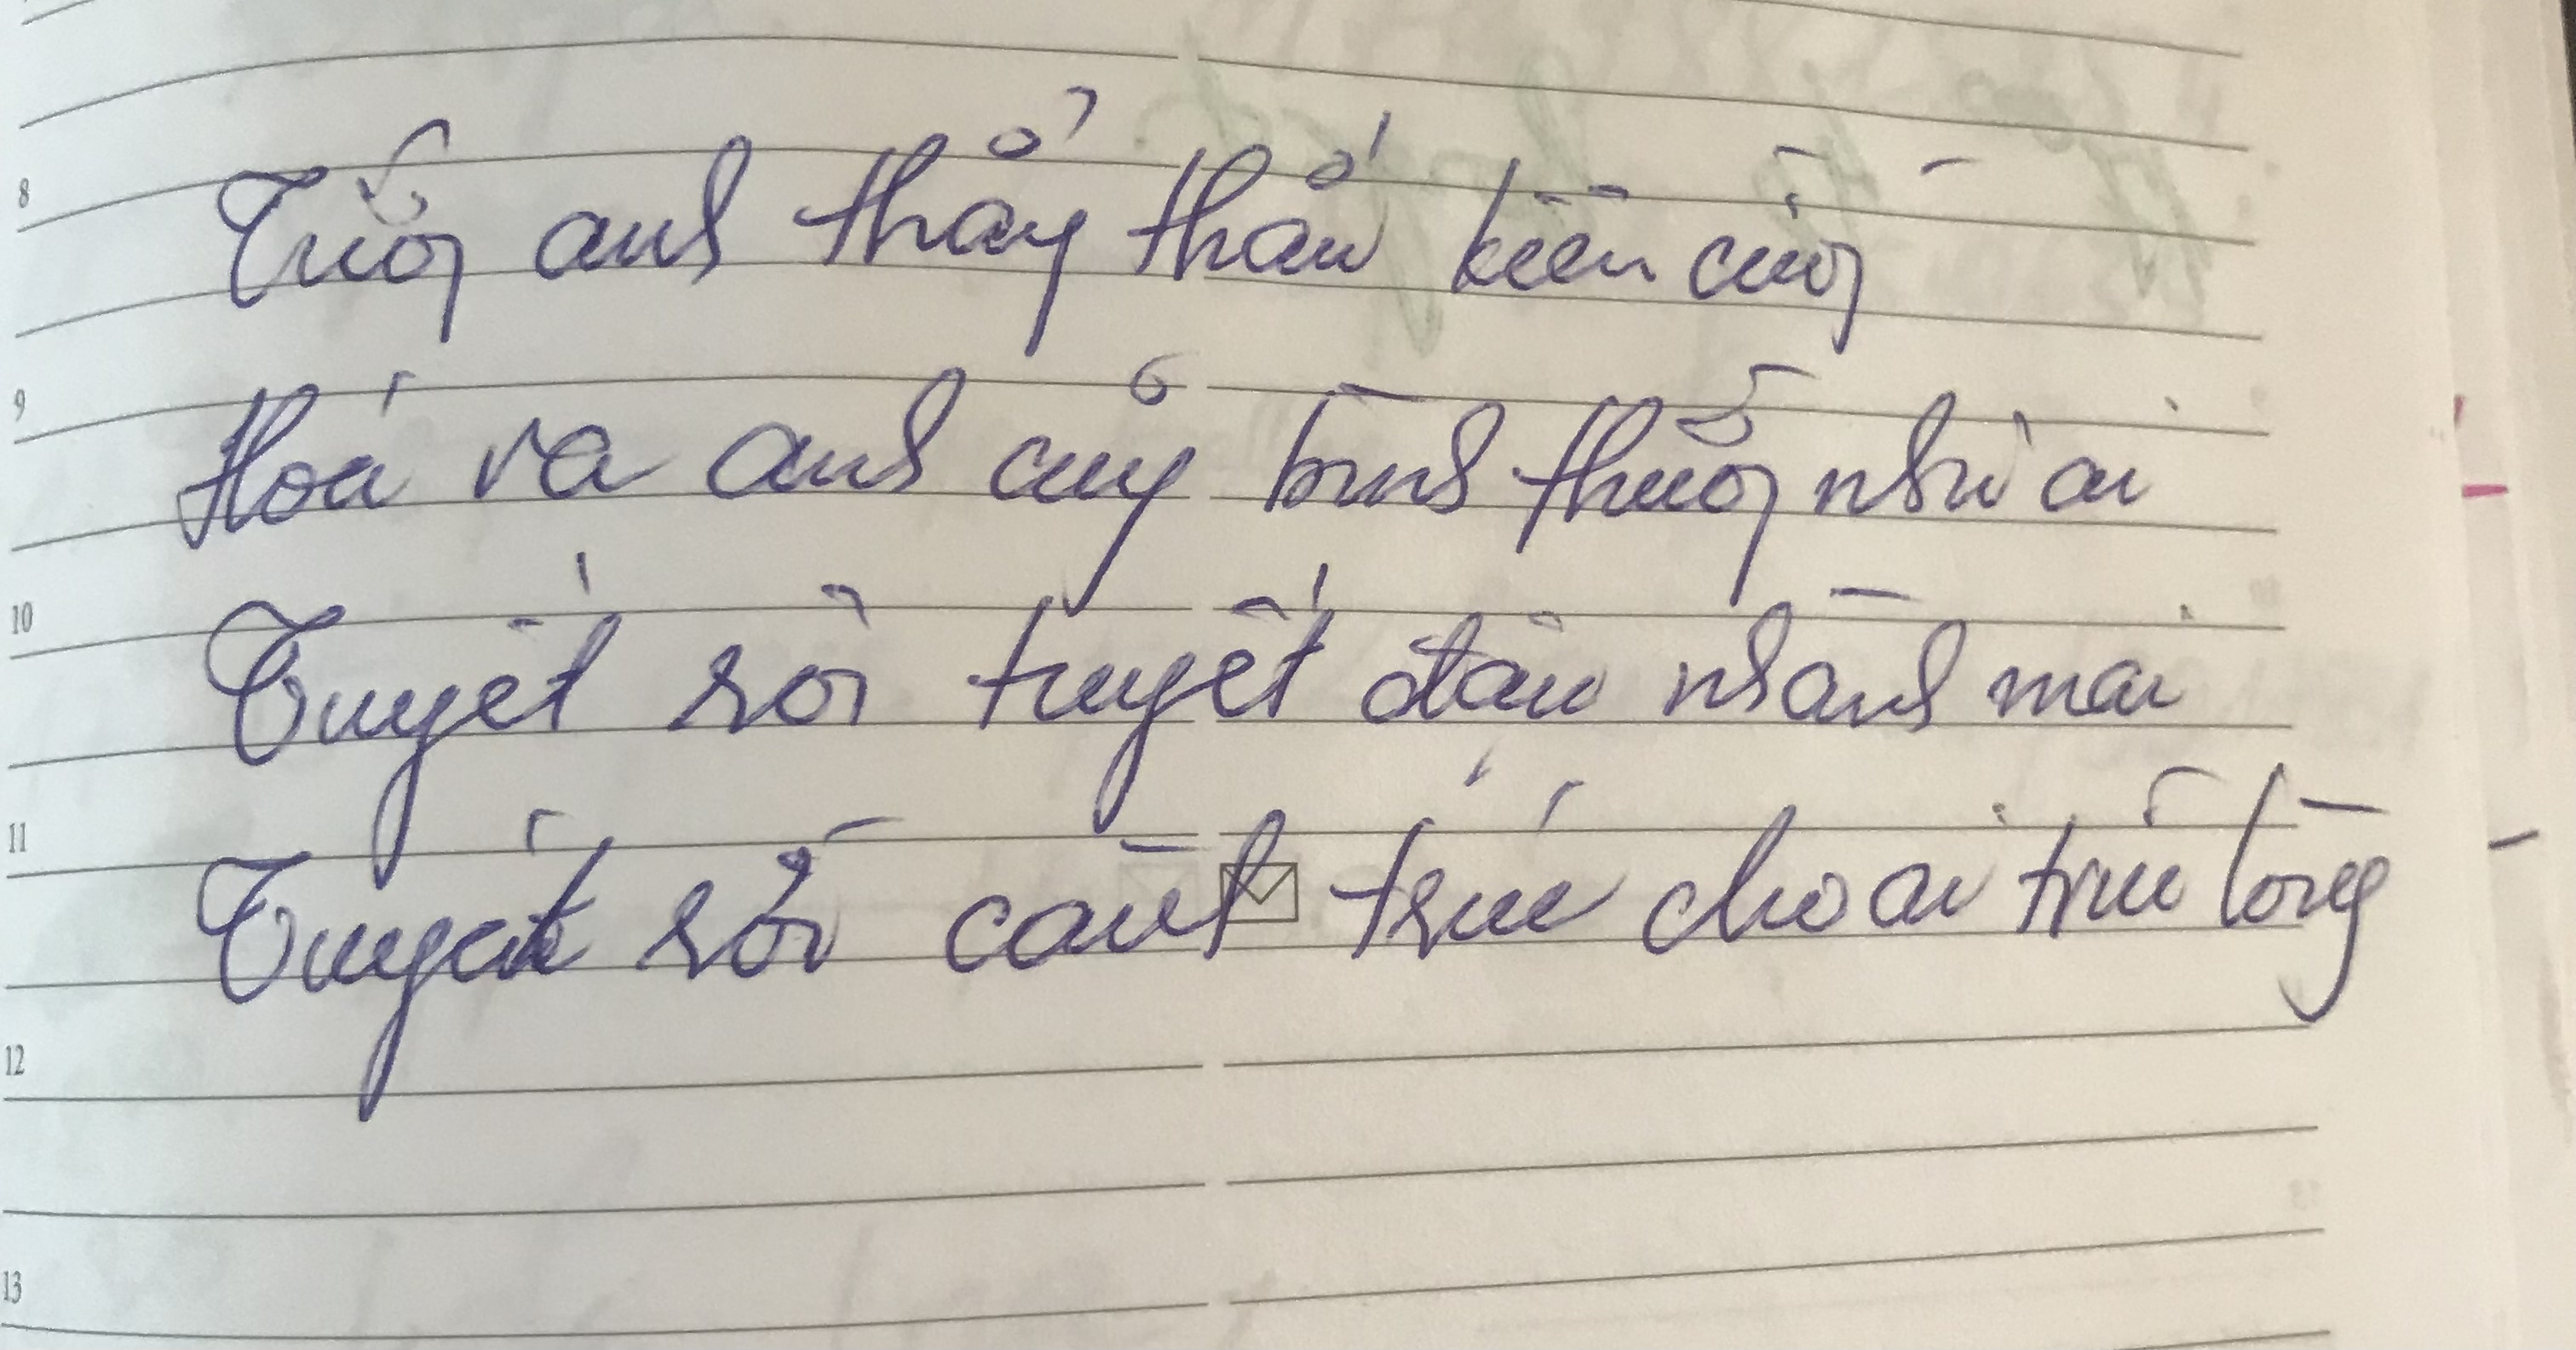 Tưởng anh thẳng thắn kiên cường
Hoá ra anh cũng bình thường như ai
Tuyết rơi tuyết đậu nhành mai
Tuyết rơi cành trúc cho ai trĩu lòng
8
9
10
11
12
13